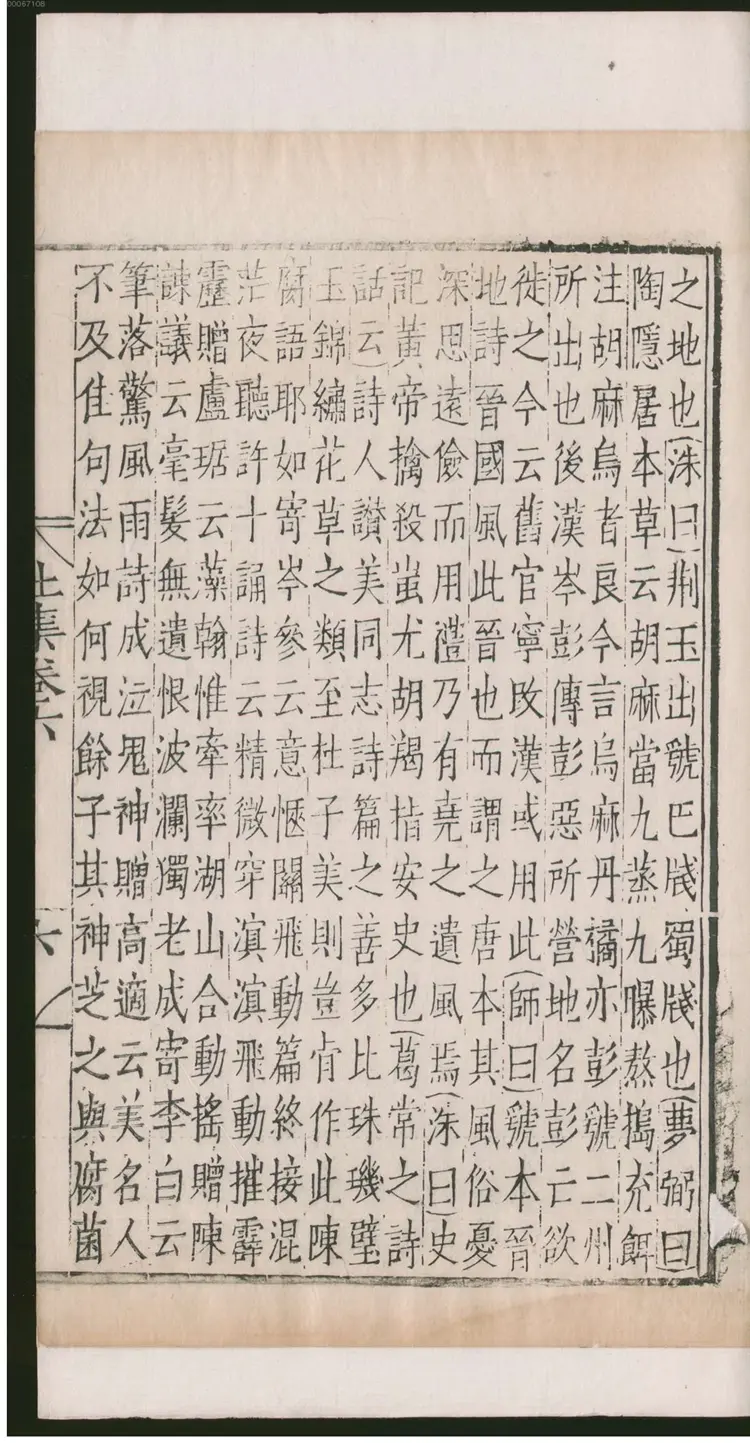 00067108
之地也洙曰荆玉出虢巴牋蜀牋也夢弼曰
陶隱居本草云胡麻當九蒸九曝熬搗充餌
注胡麻烏者良今言烏麻丹橘亦彭虢二州
所出也後漢岑彭傳彭惡所營地名彭亡欲
徙之今云舊官寧改漢或用此師曰虢本晉
地詩晉國風此晉也而謂之唐本其風俗憂
深思遠儉而用禮乃有堯之遺風焉洙曰史
記黃帝擒殺蚩尤胡羯指安史也葛常之詩
話云詩人讃美同志詩篇之善多比珠璣璧
玉錦繡花草之類至杜子美則豈肯作此陳
腐語耶如寄岑參云意愜關飛動篇終接混
茫夜聽許十誦詩云精微穿溟滓飛動摧霹
靂贈盧琚云藻翰惟牽率湖山合動搖贈陳
諫議云毫髮無遺恨波瀾獨老成寄李白云
筆落驚風雨詩成泣鬼神贈高適云美名人
不及佳句法如何視餘子其神芝之與腐菌
上集卷六
六